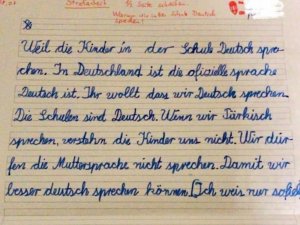 Strafarbeit ½ Seite schreiben
Warum wir in der Schule Deutsch
sprechen!
Weil die Kinder in der Schule Deutsch spre-
chen. In Deutschland ist die ofizielle sprache
Deutsch ist. Ihr wollt dass wir Deutsch sprechen.
Die Schulen sind Deutsch. Wenn wir Türkisch
sprechen, verstehn die Kinder uns nicht. Wir dür-
fen die Muttersprache nicht sprechen. Damit wir
besser deutsch sprechen können. Ich weis nur